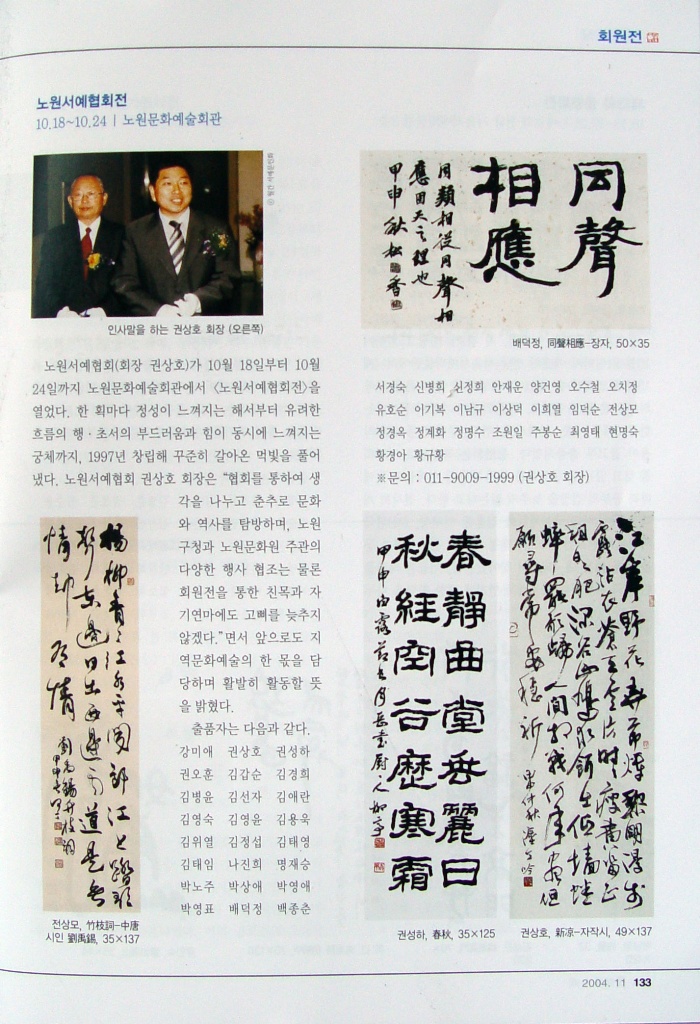 회원전
노원서예협회전
10.18~10.24 | 노원문화예술회관
인사말을 하는 권상호 회장 (오른쪽)
노원서예협회(회장 권상호)가 10월 18일부터 10월
24일까지 노원문화예술회관에서 〈노원서예협회전〉을
열었다. 한 획마다 정성이 느껴지는 해서부터 유려한
흐름의 행·초서의 부드러움과 힘이 동시에 느껴지는
궁체까지, 1997년 창립해 꾸준히 갈아온 먹빛을 풀어
냈다. 노원서예협회 권상호 회장은 “협회를 통하여 생
각을 나누고 춘추로 문화
와 역사를 탐방하며, 노원
구청과 노원문화원 주관의
다양한 행사 협조는 물론
회원전을 통한 친목과 자
기연마에도 고삐를 늦추지
않겠다.”면서 앞으로도 지
역문화예술의 한 몫을 담
당하며 활발히 활동할 뜻
을 밝혔다.
출품자는 다음과 같다.
강미애 권상호 권성하
권오훈 김갑순 김경희
김병윤 김선자 김애란
김영숙 김영윤 김용욱
김위열 김정섭 김태영
김태임 나진희 명재승
박노주 박상애 박영애
박영표 배덕정 백종춘
楊柳青江水平聞郎江上踏歌
聲東邊日出西邊雨道是無
情却有情
劉禹錫竹枝詞
전상모, 竹枝詞-中唐
시인 劉禹錫, 35×137
同聲
相應
同類相從同聲相
應固天之理也
甲申秋松香
배덕정, 同聲相應-장자, 50×35
서경숙 신병희 신정희 안재운 양건영 오수철 오치정
유호순 이기복 이남규 이상덕 이희열 임덕순 전상모
정경옥 정계화 정명수 조원일 주봉순 최영태 현명숙
황경아 황규황
※문의 : 011-9009-1999 (권상호 회장)
春靜曲堂無麗日
秋經空谷歷寒霜
권성하, 春秋, 35×125
江岸野花
권상호, 新凉-자작시, 49×137
2004. 11 133